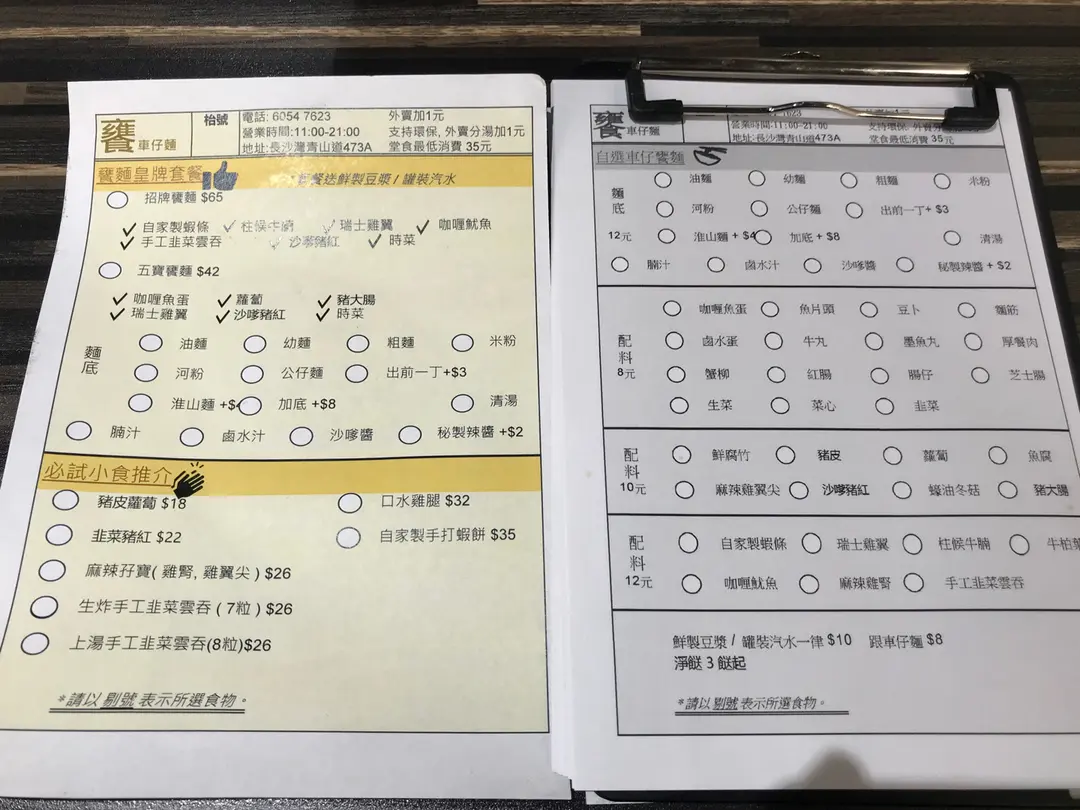 饔 車仔麵
枱號
電話: 6054 7623 外賣加1元
營業時間:11:00-21:00 支持環保, 外賣分湯加1元
地址:長沙灣青山道473A 堂食最低消費 35元
饔麵皇牌套餐 套餐送鮮製豆漿 / 罐裝汽水
招牌饔麵 $65
自家製蝦條 柱候牛腩 瑞士雞翼 咖喱魷魚
手工韭菜雲吞 沙嗲豬紅 時菜
五寶饔麵 $42
咖喱魚蛋 蘿蔔 豬大腸
瑞士雞翼 沙嗲豬紅 時菜
麵底
油麵 幼麵 粗麵 米粉
河粉 公仔麵 出前一丁+$3
淮山麵 +$4 加底 +$8 清湯
腩汁 鹵水汁 沙嗲醬 秘製辣醬 +$2
必試小食推介
豬皮蘿蔔 $18 口水雞腿 $32
韭菜豬紅 $22 自家製手打蝦餅 $35
麻辣孖寶( 雞腎, 雞翼尖 ) $26
生炸手工韭菜雲吞 ( 7粒 ) $26
上湯手工韭菜雲吞(8粒)$26
*請以 剔號 表示所選食物。
饔 車仔麵
7623 外賣加1元
營業時間:11:00-21:00 支持環保, 外賣分湯加1元
地址:長沙灣青山道473A 堂食最低消費 35元
自選車仔饔麵
麵底 12元
油麵 幼麵 粗麵 米粉
河粉 公仔麵 出前一丁+ $3
淮山麵 + $4 加底 + $8 清湯
腩汁 鹵水汁 沙嗲醬 秘製辣醬 + $2
配料 8元
咖喱魚蛋 魚片頭 豆卜 麵筋
鹵水蛋 牛丸 墨魚丸 厚餐肉
蟹柳 紅腸 腸仔 芝士腸
生菜 菜心 韭菜
配料 10元
鮮腐竹 豬皮 蘿蔔 魚腐
麻辣雞翼尖 沙嗲豬紅 蠔油冬菇 豬大腸
配料 12元
自家製蝦條 瑞士雞翼 柱候牛腩 牛柏葉
咖喱魷魚 麻辣雞腎 手工韭菜雲吞
鮮製豆漿 / 罐裝汽水一律 $10 跟車仔麵 $8
淨餸 3 餸起
*請以 剔號 表示所選食物。